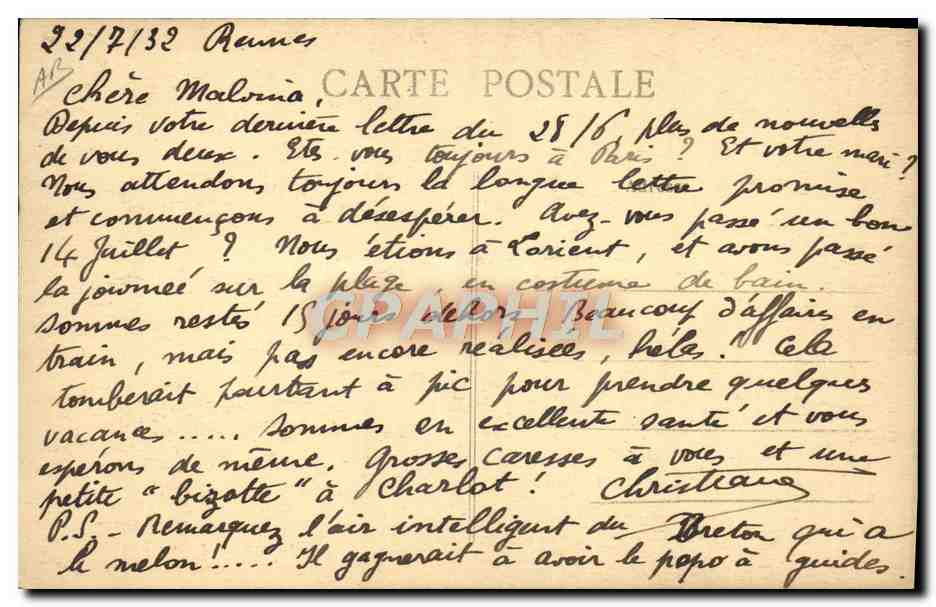 22/7/32 Rennes
AB
CARTE POSTALE
Chère Malvina,
Depuis votre dernière lettre du 28/6, plus de nouvelles
de vous deux. Etes-vous toujours à Paris ? Et votre mari ?
Nous attendons toujours la longue lettre promise
et commençons à désespérer. Avez-vous passé un bon
14 Juillet ? Nous étions à Lorient, et avons passé
la journée sur la plage, en costume de bain.
CPAPHIL
Sommes restés 15 jours dehors. Beaucoup d'affaires en
train, mais pas encore réalisées, hélas ! Cela
tomberait pourtant à pic pour prendre quelques
vacances ..... Sommes en excellente santé et vous
espérons de même. Grosses caresses à vous et une
petite "bizotte" à Charlot ! Christiane
P.S. - Remarquez l'air intelligent du Breton qui a
le melon !..... Il gagnerait à avoir le popo à guides.